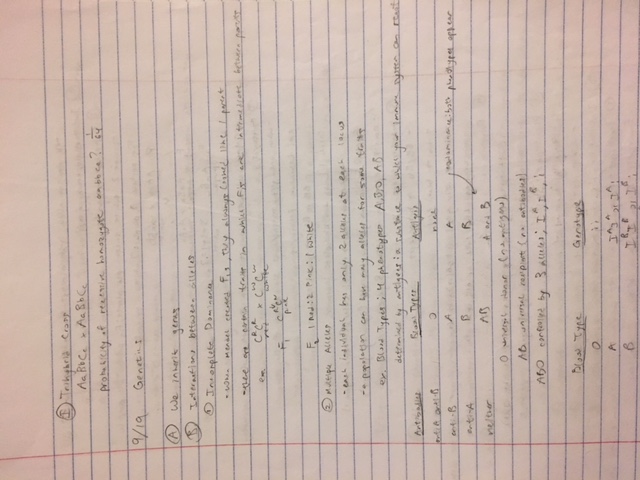 I Trihybrid Cross
AaBbCc × AaBbCc
probability of recessive homozygote aabbcc? 1/64
9/19 Genetics
A We inherit genes
B Interactions between alleles
1 Incomplete Dominance
- When Mendel created F1s, they always looked like 1 parent
- there are certain traits in which F1s are intermediate between parents
ex. C^R C^R × C^W C^W
red white
F1 C^R C^W
pink
F2 1 Red: 2 Pink: 1 White
2 Multiple Alleles
- each individual has only 2 alleles at each locus
- a population can have many alleles for some traits
ex. Blood Types; 4 phenotypes A, B, O, AB
determined by antigens: a substance to which your immune system can react
Antibodies Blood Types Antigens
anti-A anti-B O none
anti-B A A
anti-A B B codominance: both phenotypes appear
neither AB A and B
O universal donor (no antigens)
AB universal recipient (no antibodies)
ABO controlled by 3 alleles; I^A, I^B, i
Blood Type Genotype
O ii
A I^A I^A or I^A i
B I^B I^B or I^B i